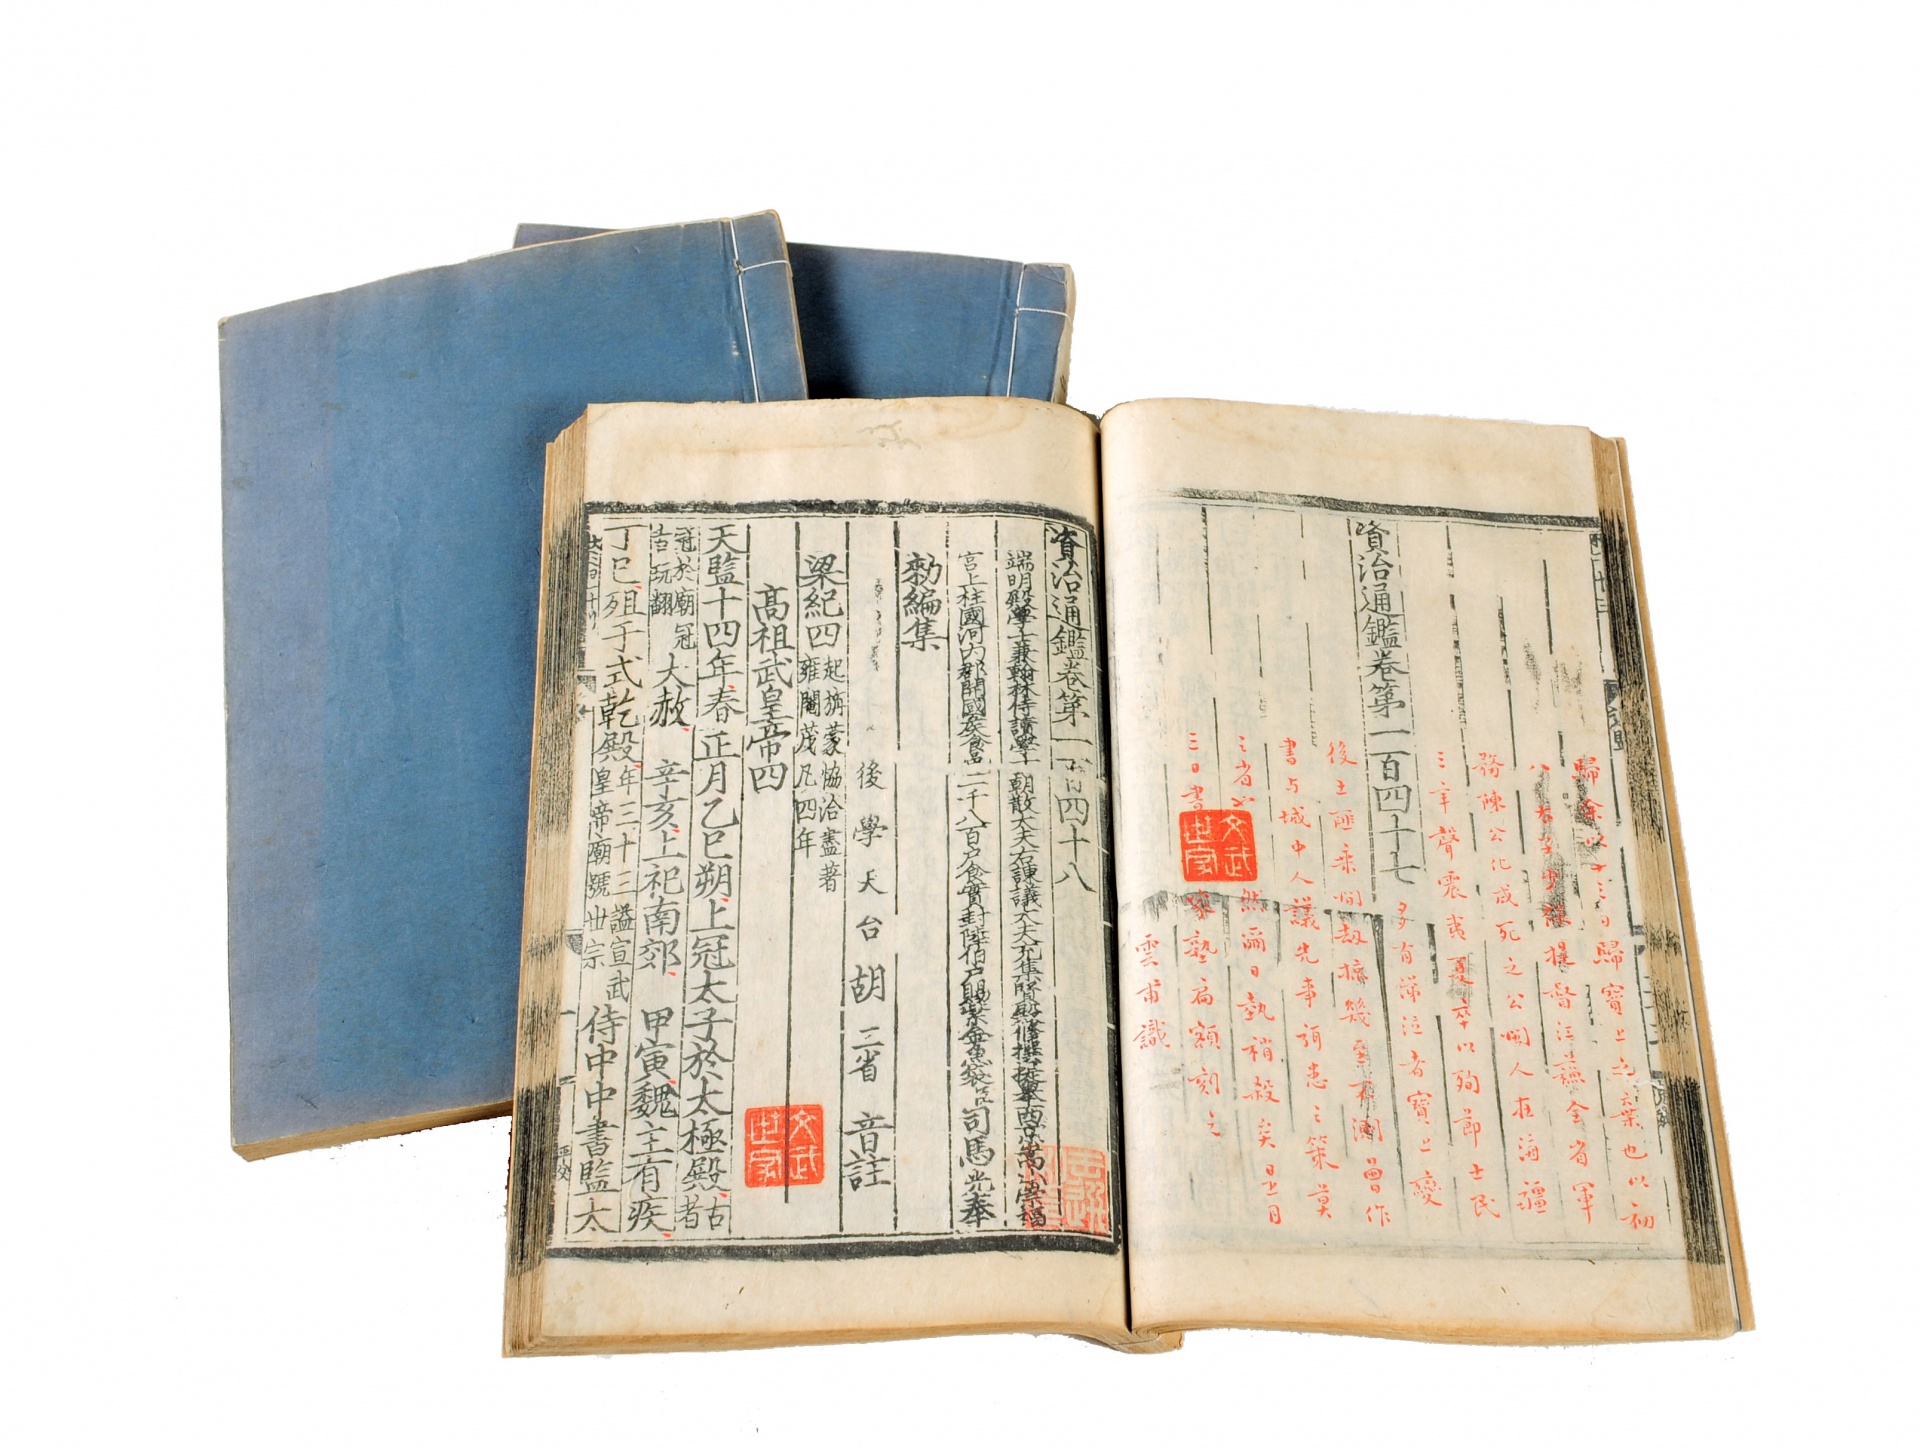 歸余以十三日歸寶上之葉也以初
提督江蘇全省軍
務陳公化成死之公閩人在海疆
三年聲震夷夏卒以殉節士民
資治通鑑卷第一百四十七
多有涕泣者寶上變
後土匪乘間劫掠幾至不測曾作
書与城中人議先事消患之策莫
之省也然邇日勢稍殺矣五月
三日書家塾扁額刻之
雲甫識
文武世家
資治通鑑卷第一百四十八
端明殿學士兼翰林侍讀學士朝散大夫右諫議大夫充集賢殿修撰提舉西京嵩山崇福
宫上柱國河内郡開國侯食邑二千八百户食實封陸伯户賜紫金魚袋臣司馬光奉
勑編集
後學天台胡三省音註
梁紀四起旃蒙協洽盡著雍閹茂凡四年
高祖武皇帝四
天監十四年春正月乙巳朔上冠太子於太極殿古者
冠於廟冠吉玩翻大赦辛亥上祀南郊甲寅魏主有疾
丁巳殂于式乾殿年三十三諡宣武皇帝廟號世宗侍中中書監太
文武世家